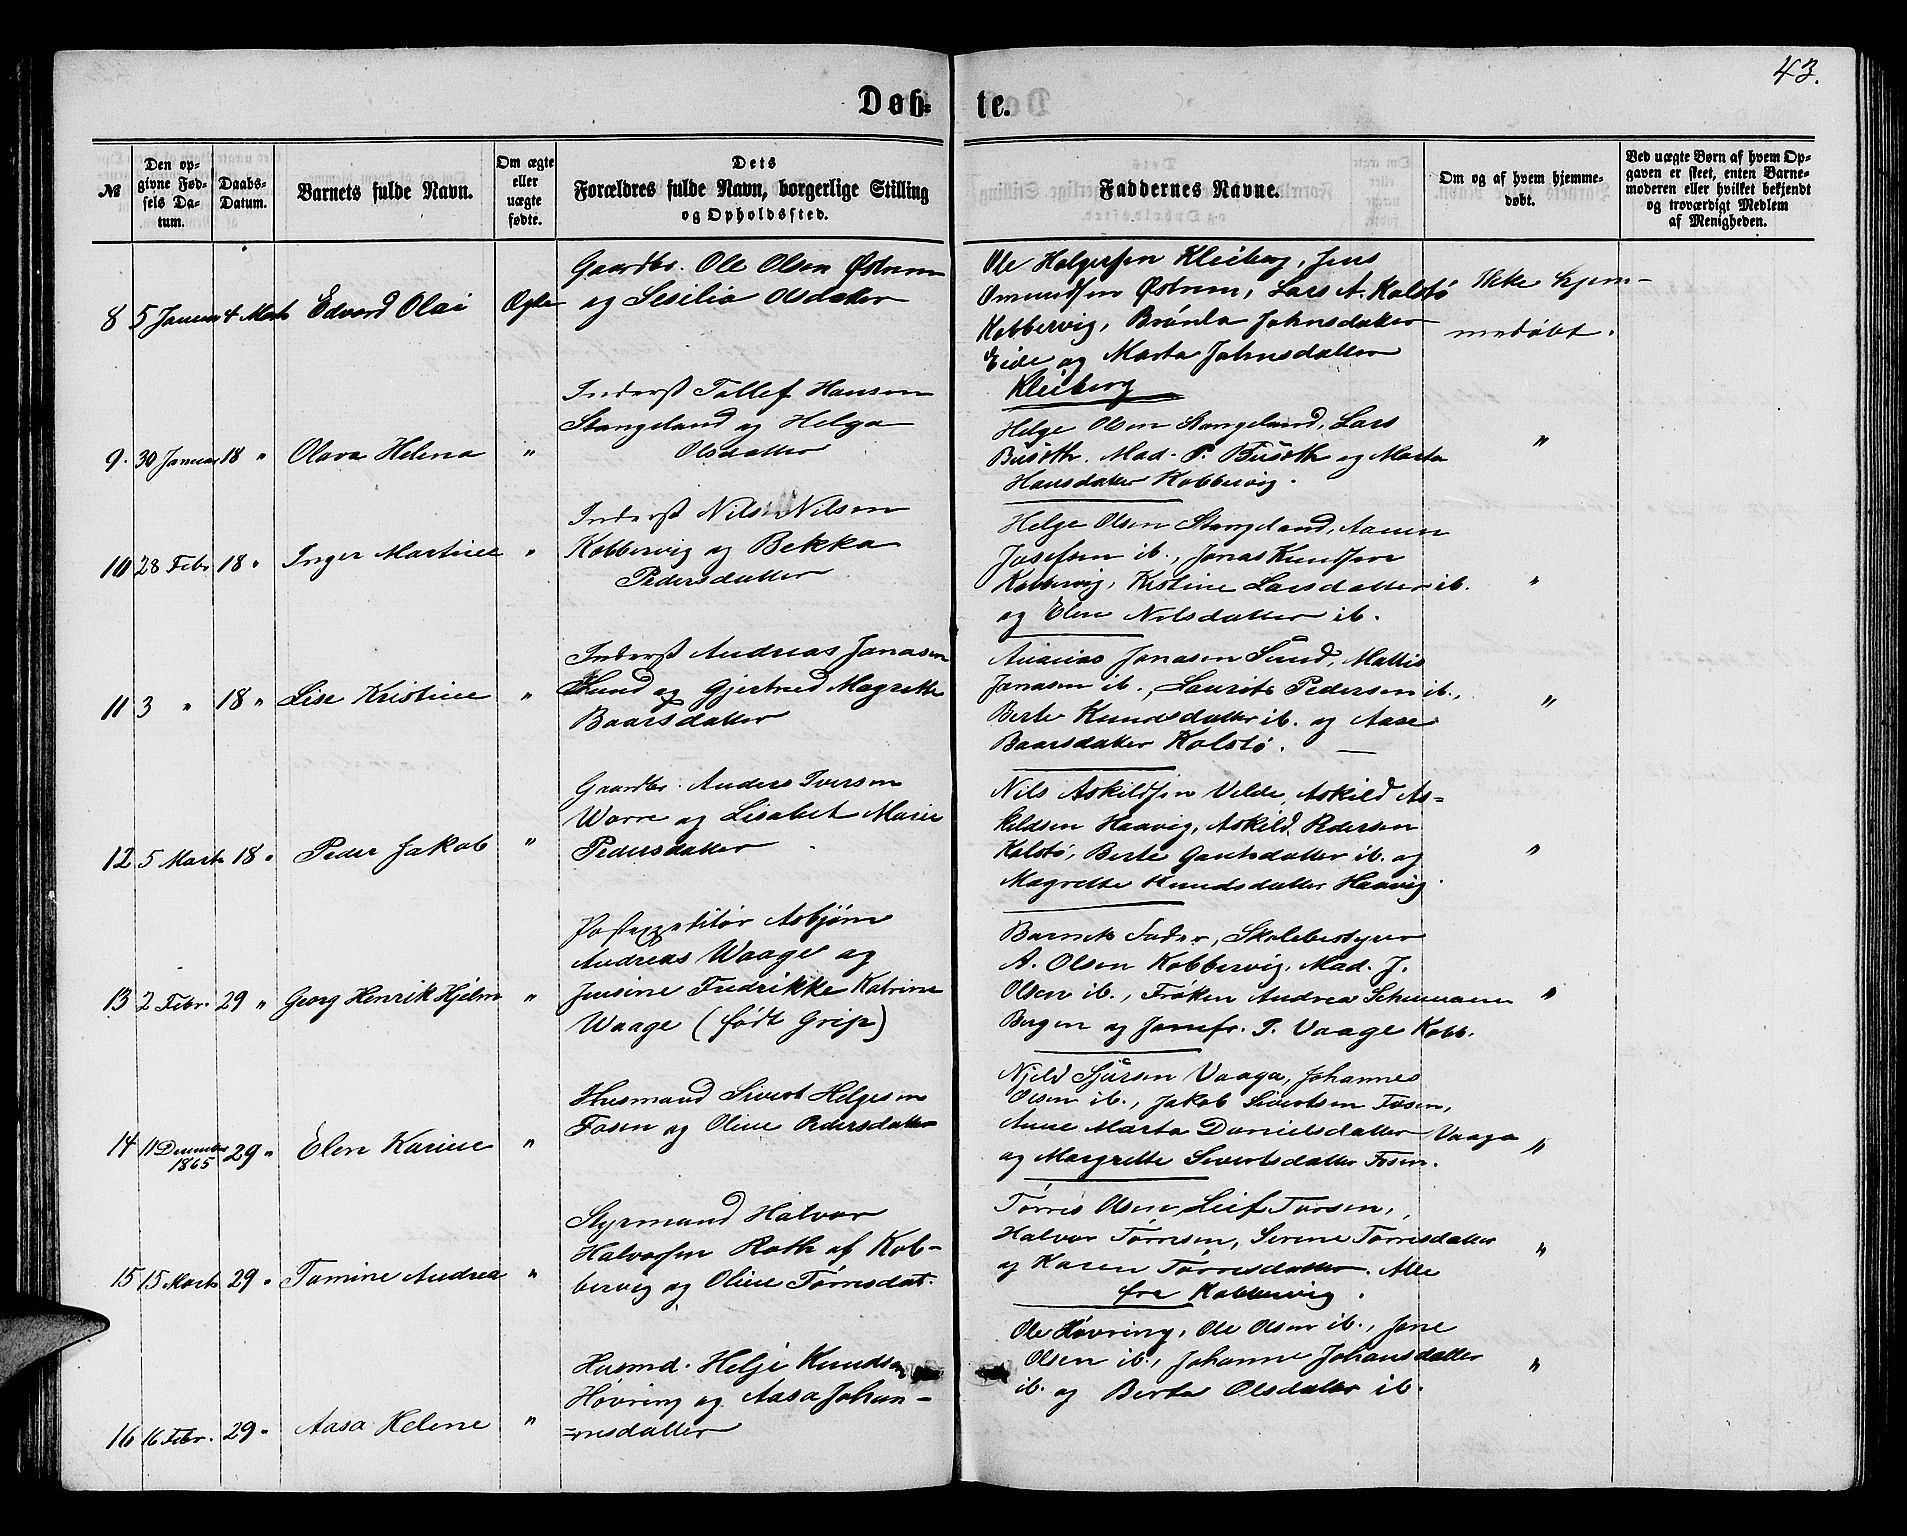 43.
Døb-
te.
№
Den op-
givne Fød-
sels Da-
tum.
Daabs-
Datum.
Barnets fulde Navn.
Om ægte
eller
uægte
fødte.
Dets
Forældres fulde Navn, borgerlige Stilling
og Opholdssted.
Faddernes Navne.
Om og af hvem hjemme-
døbt.
Ved uægte Børn af hvem Op-
gaven er skeet, enten Barne-
moderen eller hvilket bekjendt
og troværdigt Medlem
af Menigheden.
8 5 Januar 4 Marts Edvard Olai Ægte
Gaardbr. Ole Olsen Østrem
og Sesilia Olsdatter
Ole Holgersen Kleiberg, Jens
Omundsen Østrem, Lars A. Kolstø
Kobbervig, Brønla Johnsdatter
Eide og Marta Johnsdatter
Kleiberg
Ikke hjem-
medøbt.
9. 30 Januar 18 " Olava Helena "
Inderst Tollef Hansen
Stangeland og Helga
Olsdatter
Helge Olsen Stangeland, Lars
Büsoth, Mad. P. Büsoth og Marta
Hansdatter Kobbervig.
"
10 28 Febr. 18 " Inger Martine "
Inderst Nils Nilsen
Kobbervig og Bekka
Pedersdatter
Helge Olsen Stangeland, Aamen
Josefsen ib., Jonas Knudsen
Kobbervig, Kistine Larsdatter ib.
og Elen Nilsdatter ib.
"
11 3 " 18 " Lise Kristine "
Inderst Andreas Jonasen
Sund og Gjertrud Magrethe
Baarsdatter
Ananias Jonasen Sund, Mattis
Jonasen ib., Laurits Pedersen ib.,
Berte Knudsdatter ib. og Aase
Baarsdatter Kolstø.
"
12 5 Marts 18 " Peder Jakob "
Gaardbr. Anders Iversen
Worre og Lisabet Marie
Pedersdatter
Nils Askildsen Velde, Askild As-
kildsen Haavig, Askild Pedersen
Kolstø, Berte Gautsdatter ib. og
Magrette Knudsdatter Haavig.
"
13 2 Febr. 29 " Georg Henrik Hjelm "
Postexpeditør Asbjørn
Andreas Waage og
Jensine Fredrikke Katrine
Waage (født Grip)
Barnets Fader, Skolebestyrer
A. Olsen Kobbervig, Mad. J.
Olsen ib., Frøken Andrea Schumann
Bergen og Jomfr. P. Vaage Kobb.
"
14 11 December
1865 29 " Elen Karine "
Husmand Sivert Helgesen
Fosen og Oline Pedersdatter
Njeld Sjursen Vaaga, Johannes
Olsen ib., Jakob Sivertsen Fosen,
Anne Marta Danielsdatter Vaaga
og Margrette Sivertsdatter Fosen.
"
15 15 Marts 29 " Tomine Andrea "
Styrmand Halvor
Halvorsen Roth af Kob-
bervig og Oline Tørresdat.
Tørres Olsen, Leif Torsen,
Halvor Tørresen, Serene Tørresdatter
og Karen Tørresdatter. Alle
fra Kobbervig.
"
16 16 Febr. 29 " Aasa Helene "
Husmd. Helje Knudsen
Høvring og Aasa Johan-
nesdatter
Ole Høvring, Ole Olsen ib., Jone
Olsen ib., Johanne Johansdatter
ib. og Berta Olsdatter ib.
"